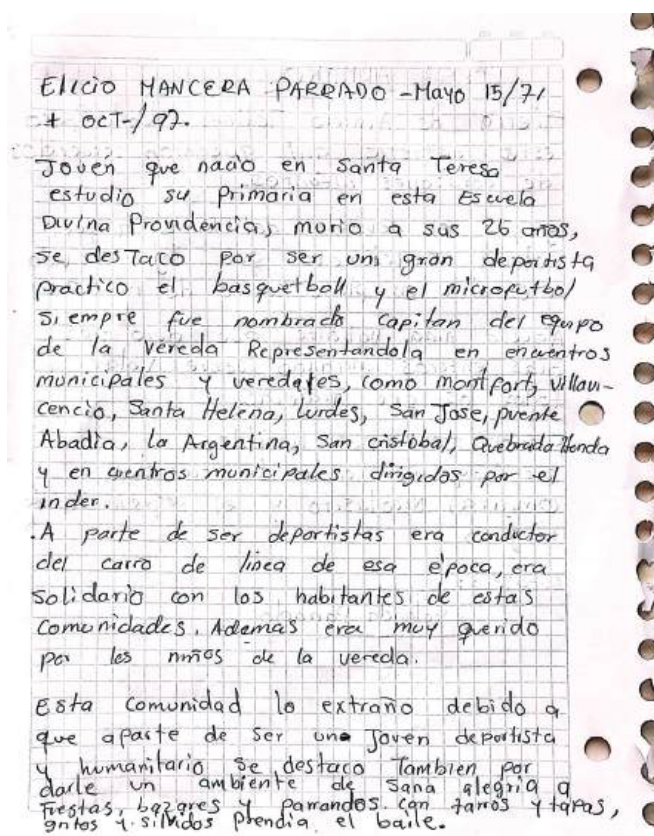 Elicio MANCERA PARRADO - Mayo 15/71
+ OCT-/97.
Joven que nacio en Santa Teresa
estudio su Primaria en esta Escuela
Divina Providencia, murio a sus 26 años,
se desTaco por ser un gran deportista
practico el basquetboll y el microfutbol
Siempre fue nombrado capitan del equipo
de la vereda Representandola en encuentros
municipales y veredales, como montfort, villavi-
cencio, Santa Helena, Lurdes, San Jose, puente
Abadia, la Argentina, San cristobal, Quebrada Honda
y en cuentros municipales dirigidos por el
inder.
.A parte de ser deportistas era conductor
del carro de linea de esa epoca, era
solidario con los habitantes de estas
comunidades. Ademas era muy querido
por los niños de la vereda.
Esta comunidad lo extraño debido a
que aparte de ser une Joven deportista
y humanitario se destaco Tambien por
darle un ambiente de sana alegria a
Fiestas, bazares y parrandos con tarros y tapas,
gritos y silvidos prendia el baile.